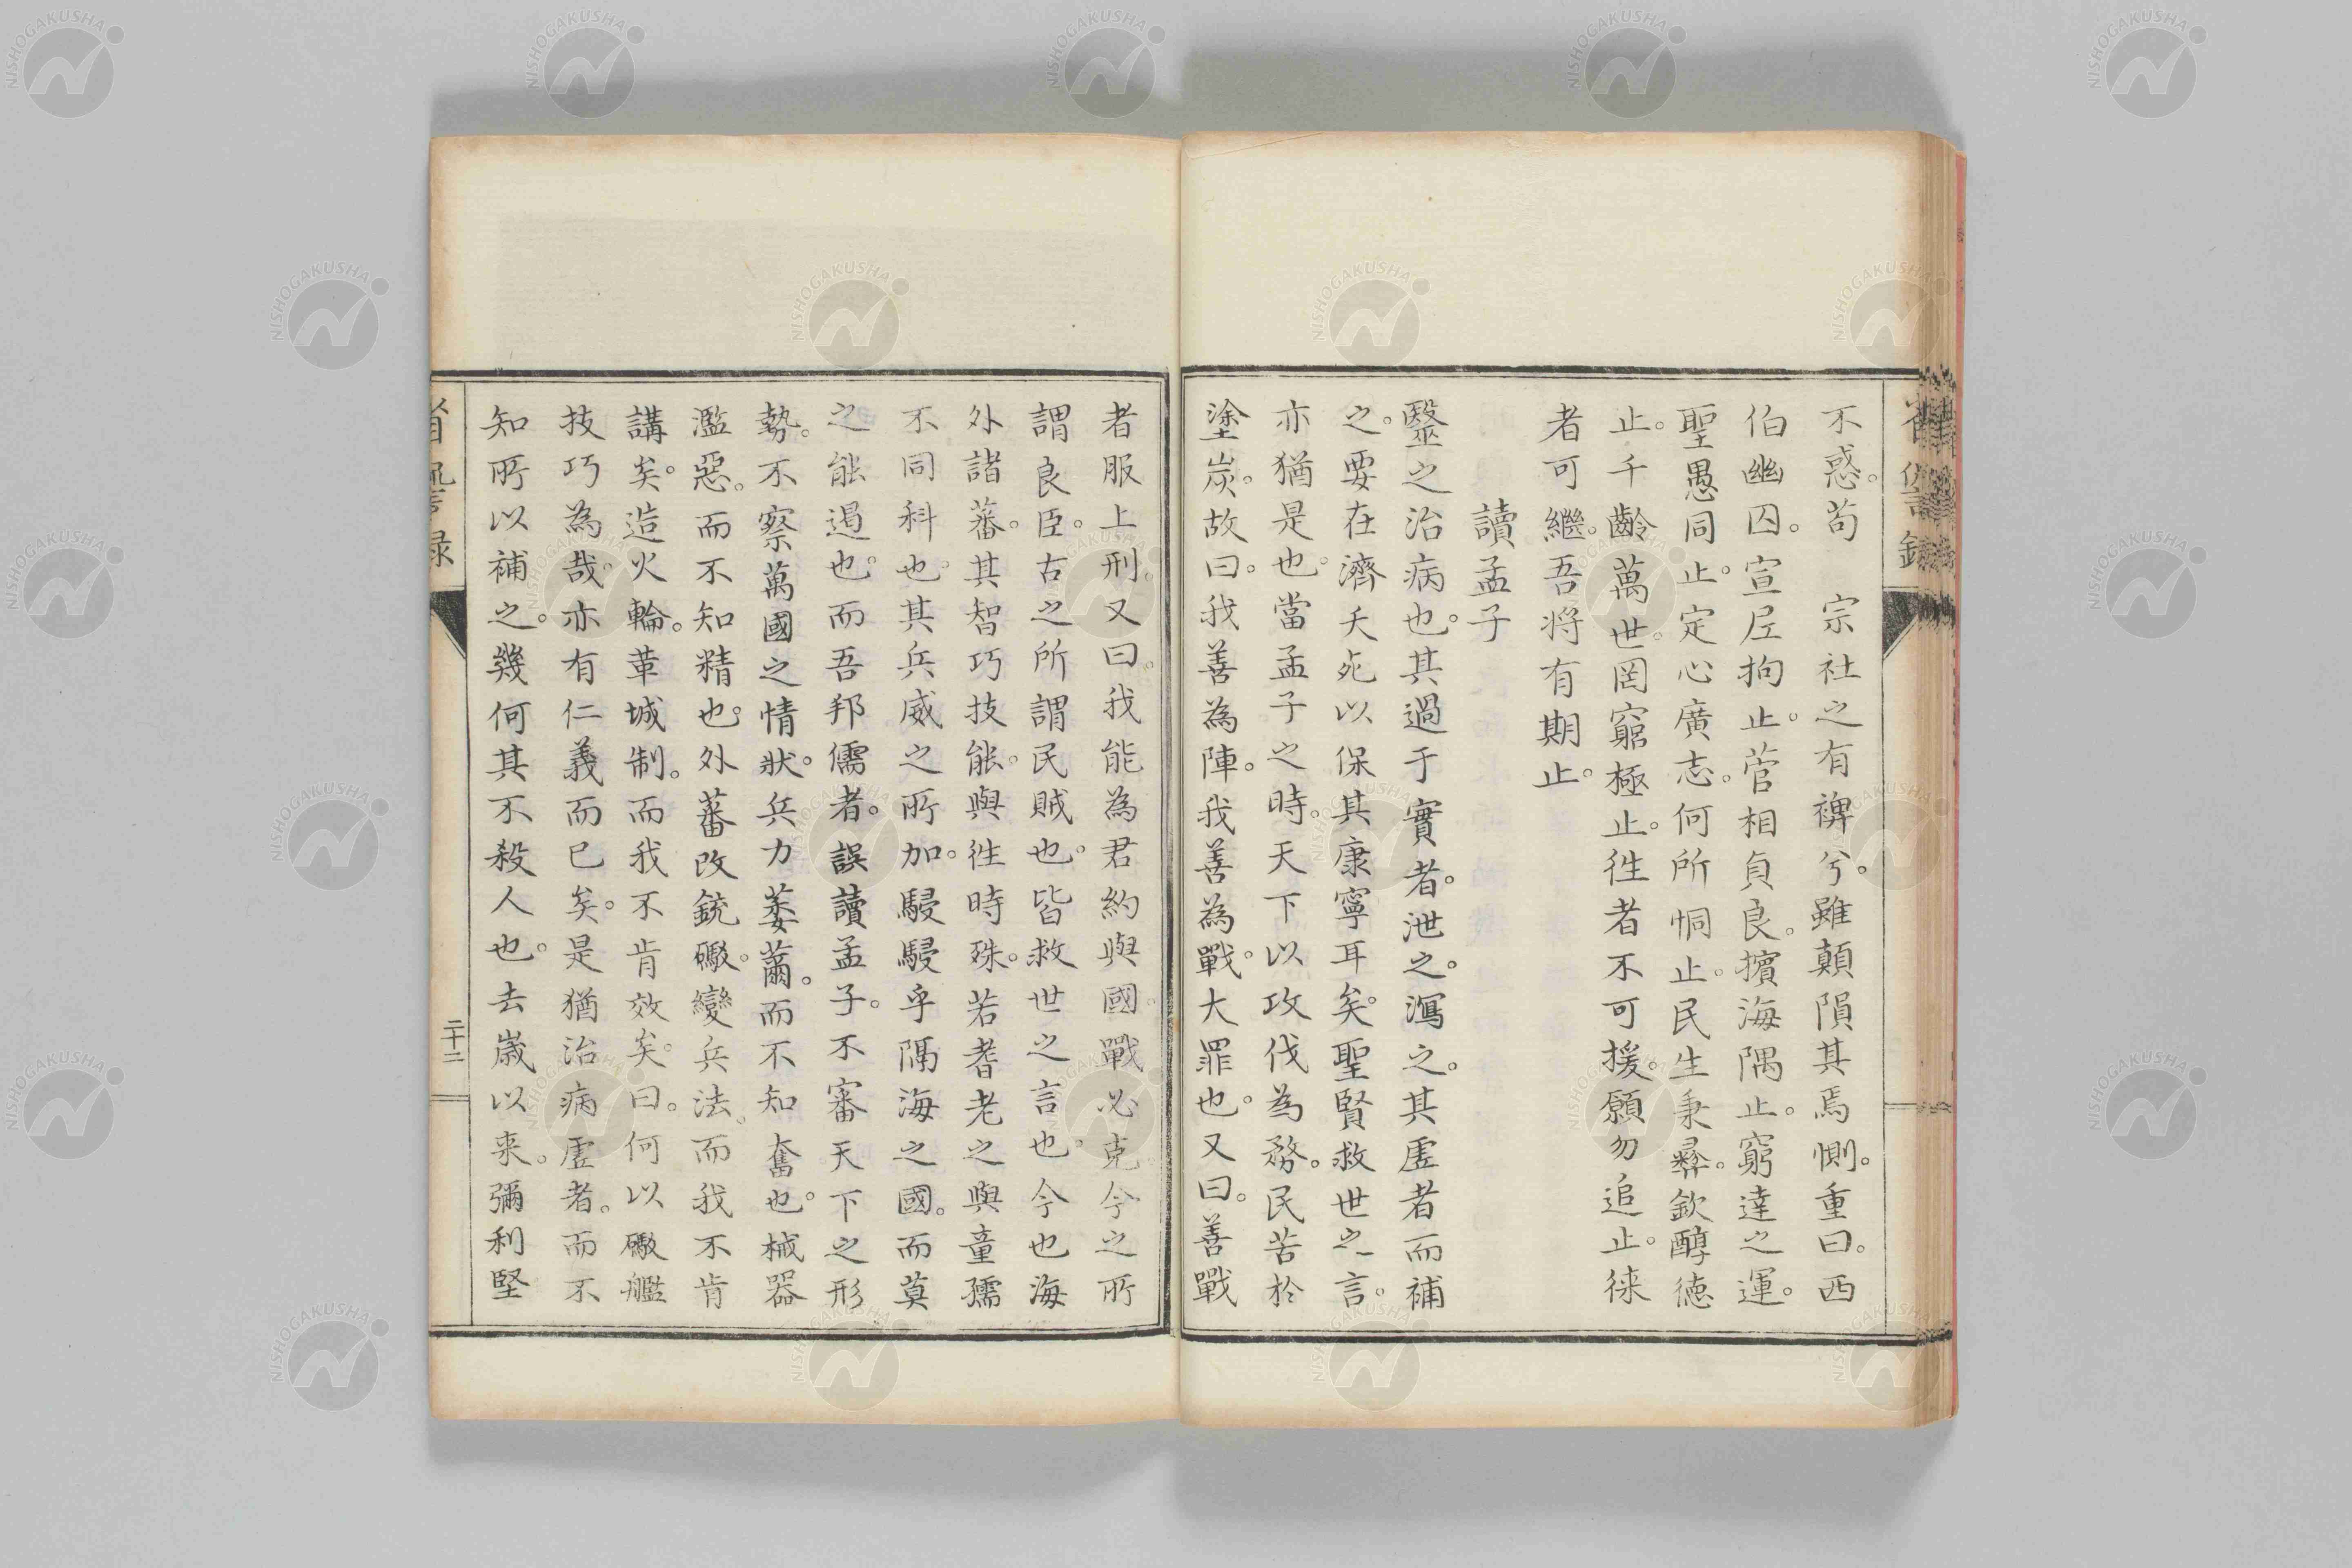 不惑。苟　宗社之有裨兮。雖顛隕其焉惻。重曰。西
伯幽囚。宣尼拘止。菅相貞良。擯海隅止。窮達之運。
聖愚同止。定心廣志。何所恫止。民生秉彝。欽醇徳
止。千齡萬世。罔窮極止。徃者不可援。願勿追止。徠
者可繼。吾將有期止。
讀孟子
毉之治病也。其過于實者。泄之。瀉之。其虛者而補
之。要在濟夭死以保其康寧耳矣。聖賢救世之言。
亦猶是也。當孟子之時。天下以攻伐為務。民苦於
塗炭。故曰。我善為陣。我善為戰。大罪也。又曰。善戰
者服上刑。又曰。我能為君約與國。戰必克。今之所
謂良臣。古之所謂民賊也。皆救世之言也。今也海
外諸蕃。其智巧技能。與徃時殊。若耆老之與童孺
不同科也。其兵威之所加。駸駸乎隅海之國。而莫
之能遏也。而吾邦儒者。誤讀孟子。不審天下之形
勢。不察萬國之情狀。兵力萎薾。而不知奮也。械器
濫惡。而不知精也。外蕃改銃礮。變兵法。而我不肯
講矣。造火輪。革城制。而我不肯效矣。曰。何以礮艦
技巧為哉。亦有仁義而已矣。是猶治病虛者。而不
知所以補之。幾何其不殺人也。去歳以来。彌利堅
省諐録
二十二
NISHOGAKUSHA